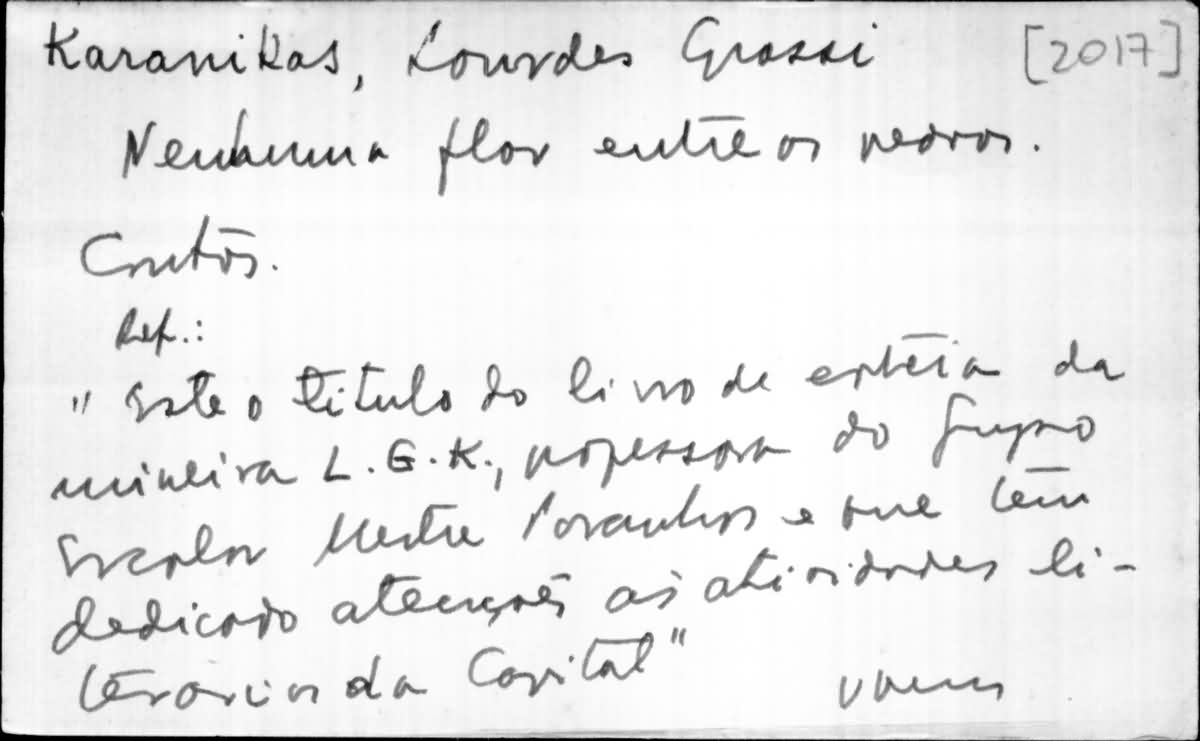 Karanikas, Lourdes Grossi [2017]
Nenhuma flor entre as pedras.
Contos.
Ref.:
"Este o título do livro de estréia da
mineira L.G.K., professora do Grupo
Escolar Mestre Paranhos e que tem
dedicado atenções às atividades li-
terárias da Capital"